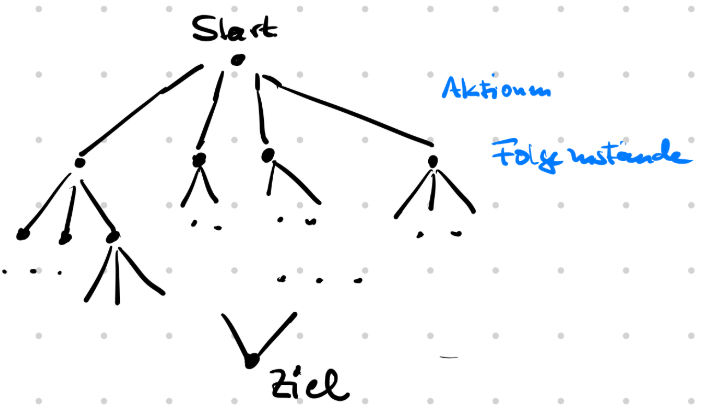 Start
Aktionen
Folgezustände
Ziel